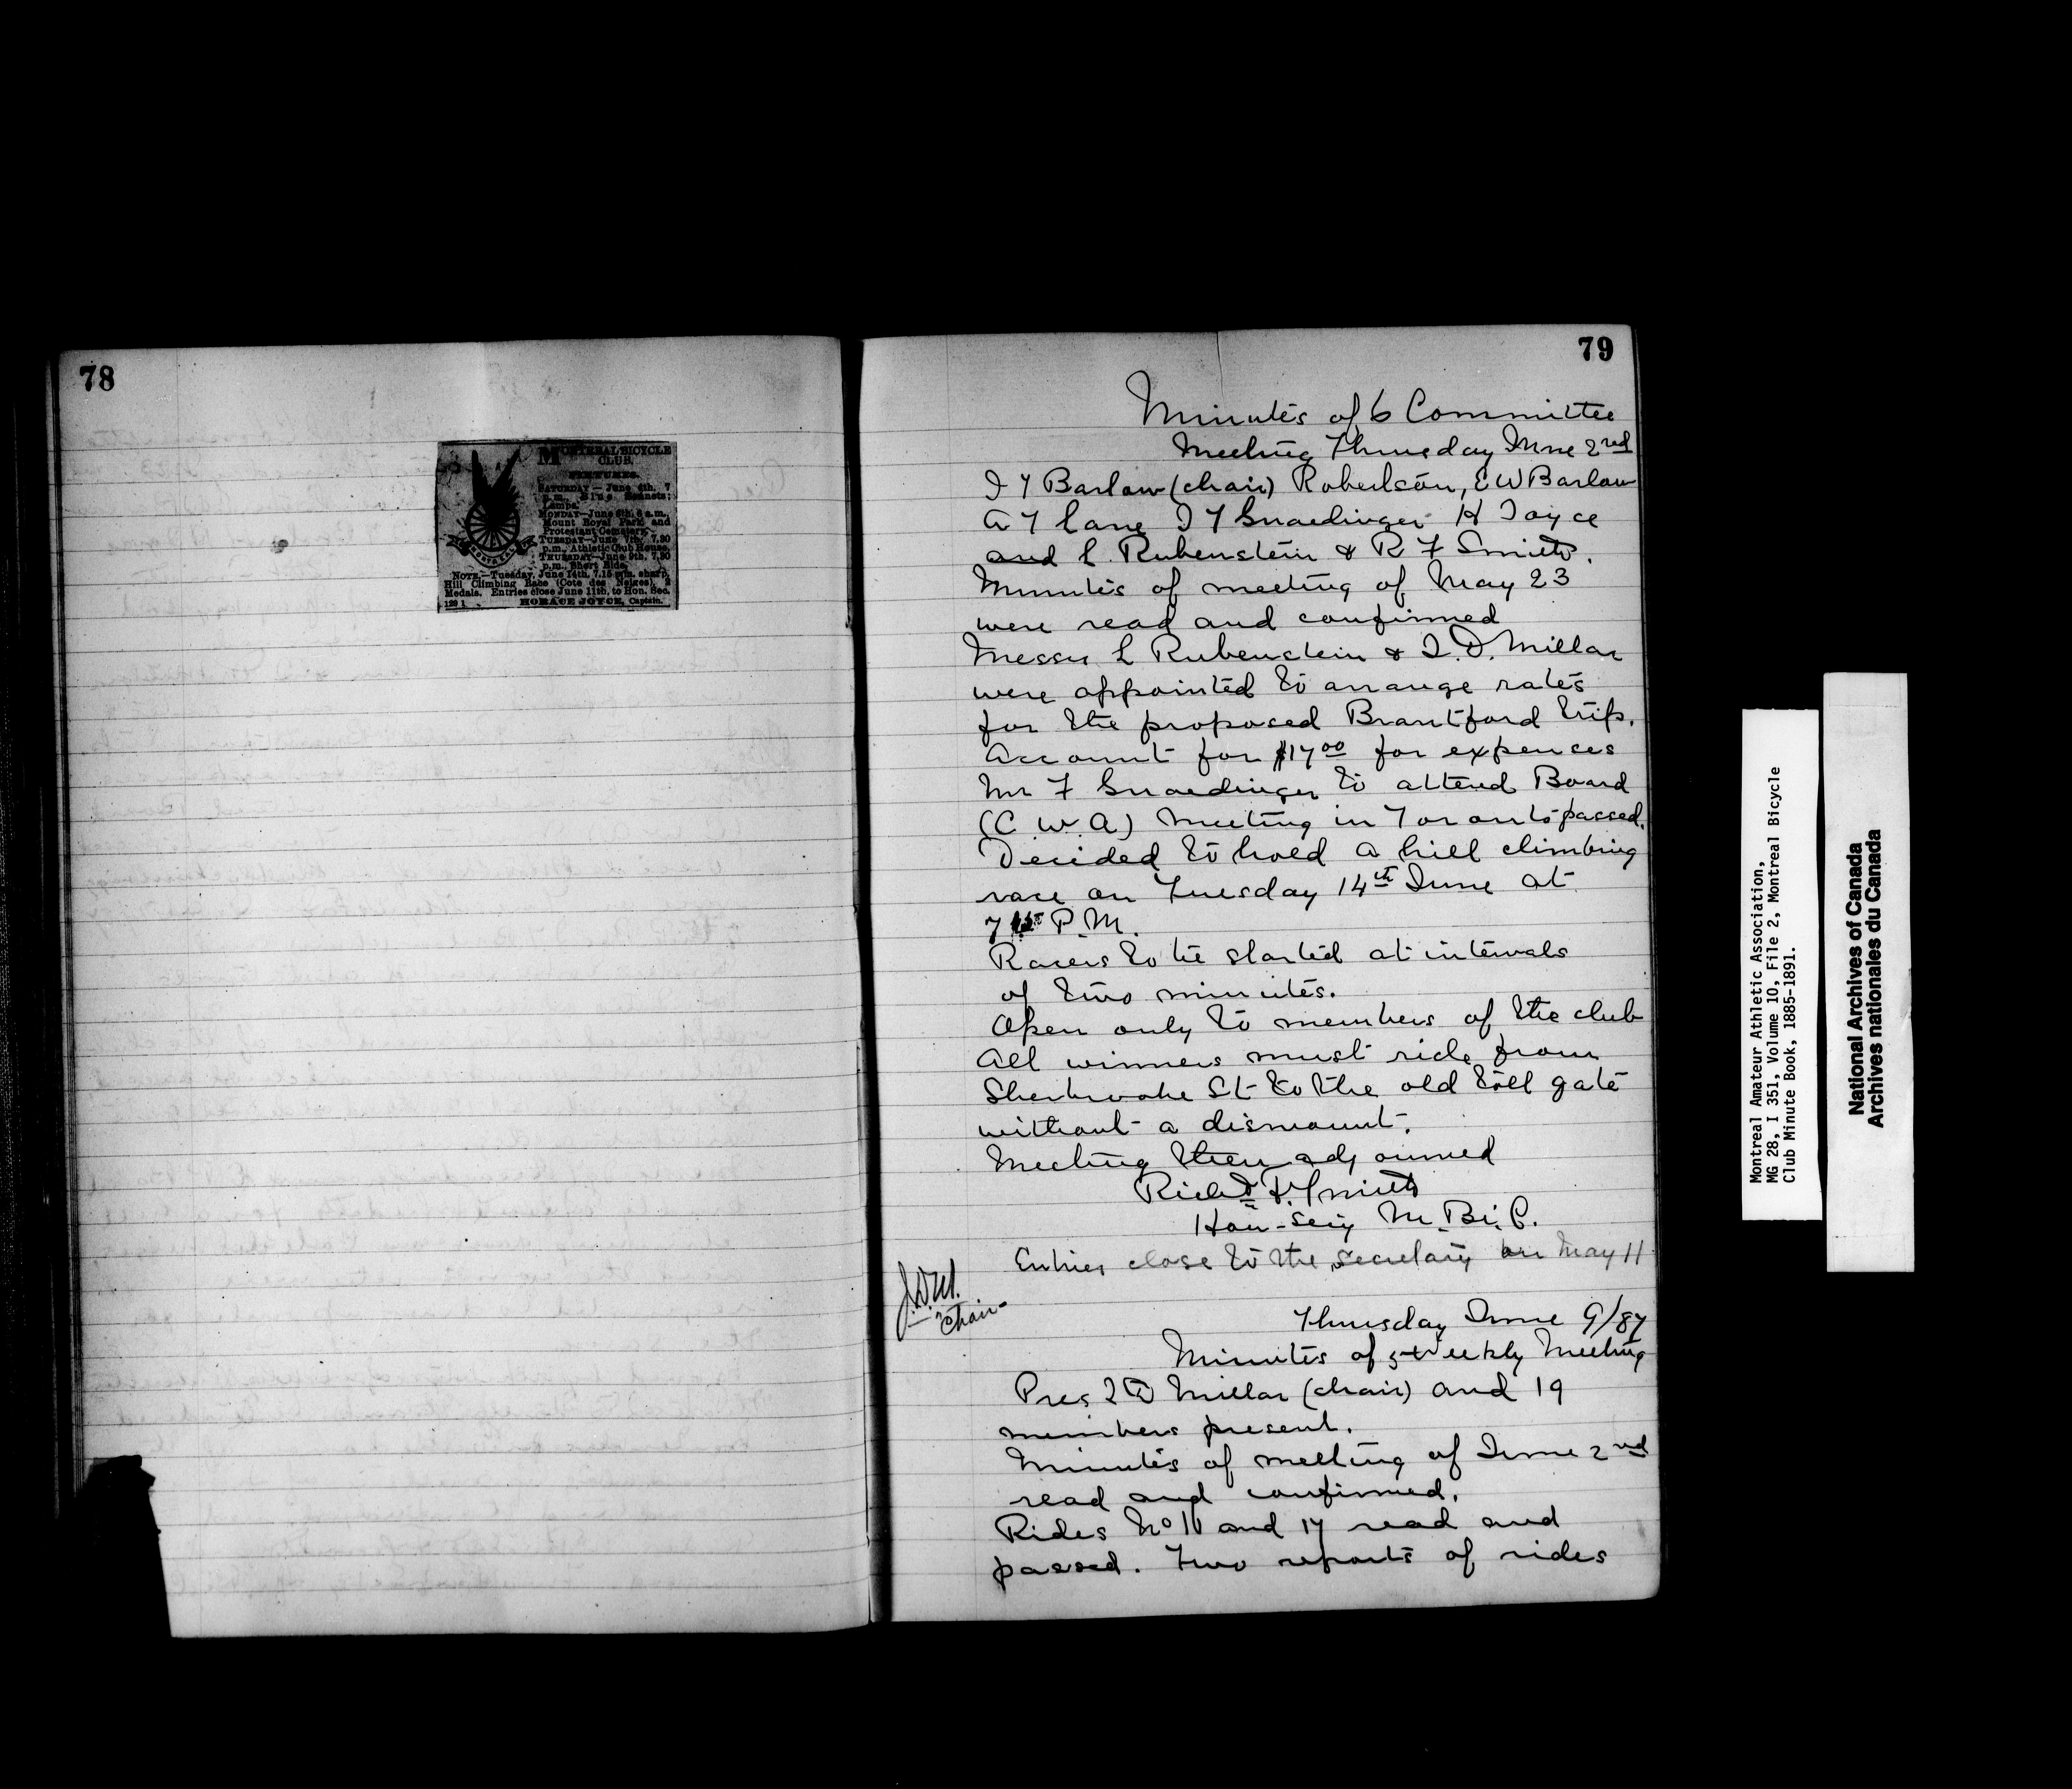 78
MONTREAL BICYCLE
CLUB.
FIXTURES.
SATURDAY—June 4th, 7
p.m., Blue Bonnets;
Lamps.
MONDAY—June 6th, 6 a.m.,
Mount Royal Park and
Protestant Cemetery.
TUESDAY—June 7th, 7.30
p.m., Athletic Club House.
THURSDAY—June 9th, 7.30
p.m., Short Ride.
NOTE.—Tuesday, June 14th, 7.15 p.m. sharp,
Hill Climbing Race (Cote des Neiges), 2
Medals. Entries close June 11th, to Hon. Sec.
HORACE JOYCE, Captain.
129 1
MONTREAL
79
Minutes of 6 Committee
Meeting Thursday June 2nd
J T Barlow (chair) Robertson, E W Barlow
A T Lane J T Gnaedinger H Joyce
and L. Rubenstein & R F Smith.
Minutes of meeting of May 23
were read and confirmed
Messrs L Rubenstein & J. D. Millar
were appointed to arrange rates
for the proposed Brantford trip.
Account for $17 00 for expences
Mr F Gnaedinger to attend Board
(C. W. A) meeting in Toronto passed.
Decided to hold a hill climbing
race on Tuesday 14th June at
7 15 P.M.
Racers to be started at intervals
of two minutes.
Open only to members of the club
All winners must ride from
Sherbrooke St to the old toll gate
without a dismount.
Meeting then adjourned
Richd F. Smith
Hon-Secy M. Bi. C.
Entries close to the secretary on May 11
J.D.M.
Chair-
Thursday June 9/87
Minutes of 5 Weekly Meeting
Pres J D Millar (chair) and 19
members present.
Minutes of meeting of June 2nd
read and confirmed.
Rides No 10 and 17 read and
passed. Two reports of rides
Montreal Amateur Athletic Association,
MG 28, I 351, Volume 10, File 2, Montreal Bicycle
Club Minute Book, 1885-1891.
National Archives of Canada
Archives nationales du Canada